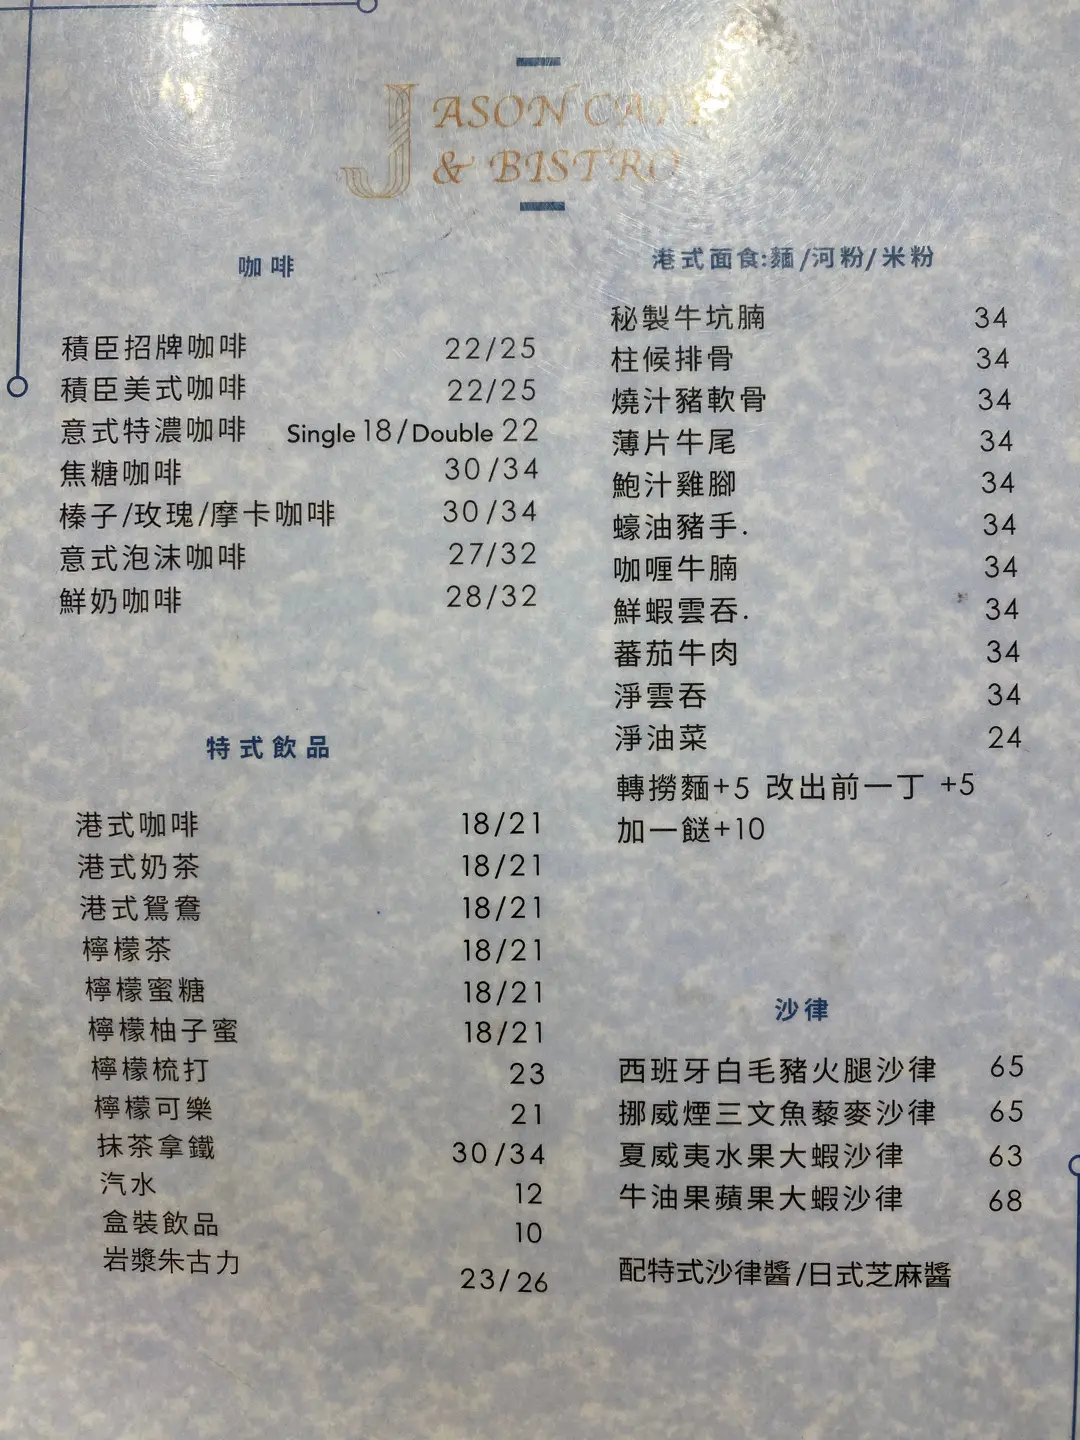 JASON CAFE
& BISTRO
咖啡
積臣招牌咖啡 22/25
積臣美式咖啡 22/25
意式特濃咖啡 Single 18/Double 22
焦糖咖啡 30/34
榛子/玫瑰/摩卡咖啡 30/34
意式泡沫咖啡 27/32
鮮奶咖啡 28/32
特式飲品
港式咖啡 18/21
港式奶茶 18/21
港式鴛鴦 18/21
檸檬茶 18/21
檸檬蜜糖 18/21
檸檬柚子蜜 18/21
檸檬梳打 23
檸檬可樂 21
抹茶拿鐵 30/34
汽水 12
盒裝飲品 10
岩漿朱古力 23/26
港式面食:麵/河粉/米粉
秘製牛坑腩 34
柱候排骨 34
燒汁豬軟骨 34
薄片牛尾 34
鮑汁雞腳 34
蠔油豬手. 34
咖喱牛腩 34
鮮蝦雲吞. 34
蕃茄牛肉 34
淨雲吞 34
淨油菜 24
轉撈麵+5 改出前一丁 +5
加一餸+10
沙律
西班牙白毛豬火腿沙律 65
挪威煙三文魚藜麥沙律 65
夏威夷水果大蝦沙律 63
牛油果蘋果大蝦沙律 68
配特式沙律醬/日式芝麻醬